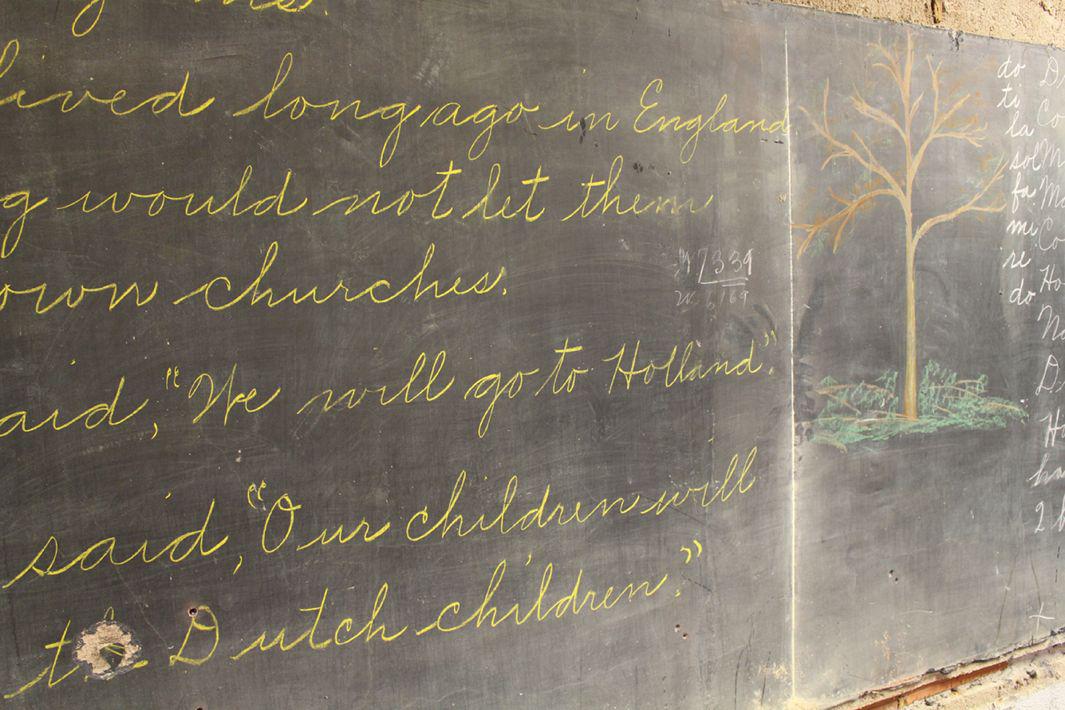 lived long ago in England
g would not let them
own churches.
aid, "We will go to Holland."
said, "Our children will
Dutch children."
7339
do
ti
la
sol
fa
mi
re
do
Co
Ho
No
2 h
+